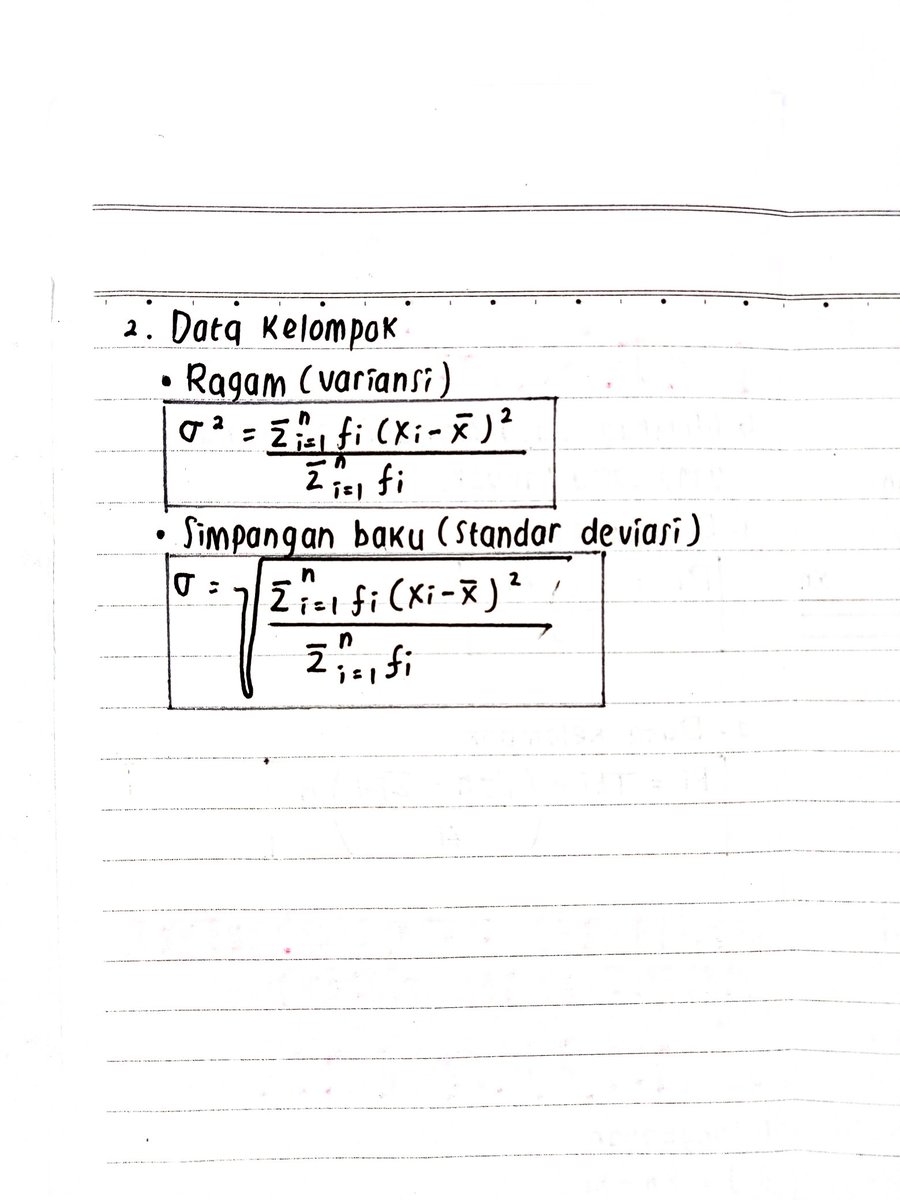 2. Data Kelompok
• Ragam (variansi)
σ² = Σⁿᵢ₌₁ fi (xi - x̄)²
Σⁿᵢ₌₁ fi
• Simpangan baku (standar deviasi)
σ = √ Σⁿᵢ₌₁ fi (xi - x̄)²
Σⁿᵢ₌₁ fi